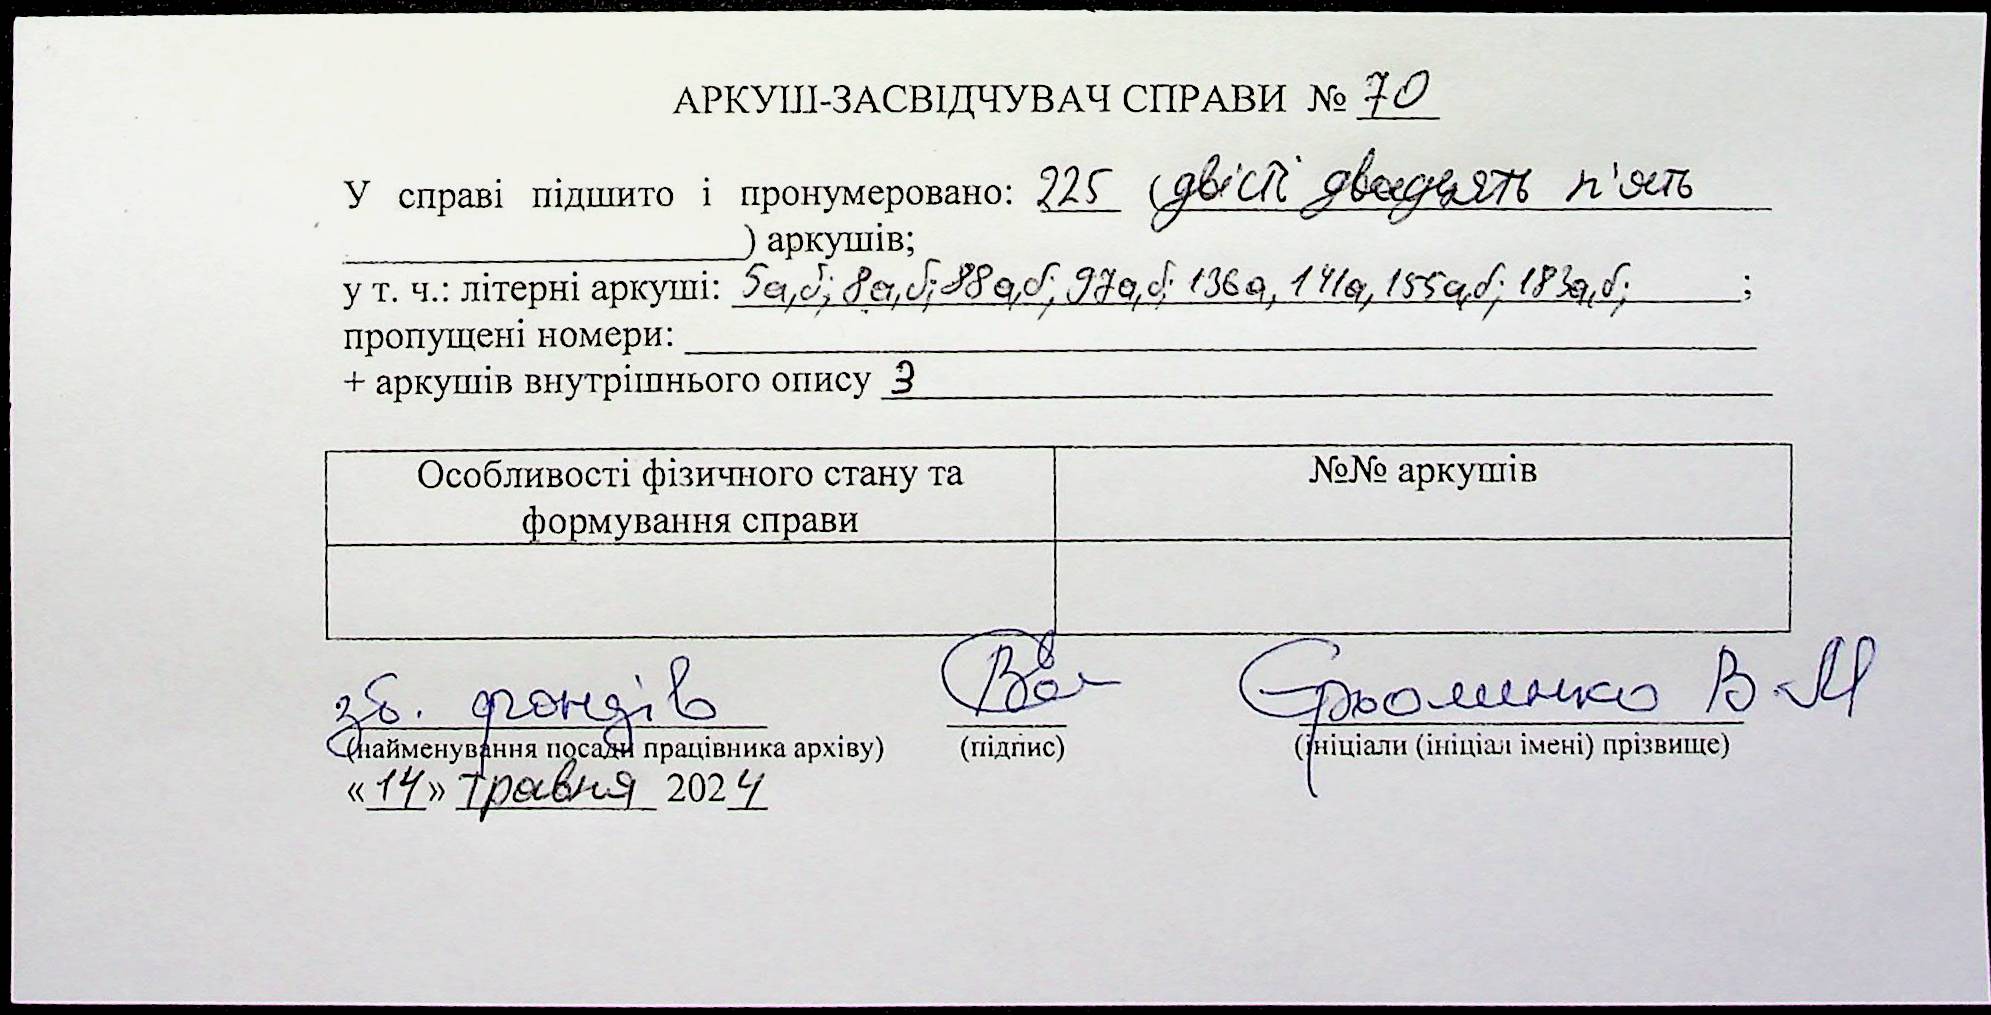 АРКУШ-ЗАСВІДЧУВАЧ СПРАВИ № 70
У справі підшито і пронумеровано: 225 (двісті двадцять п'ять
) аркушів;
у т. ч.: літерні аркуші: 5а,б; 8а,б; 88а,б; 97а,б; 136а, 141а, 155а,б; 183а,б; ;
пропущені номери:
+ аркушів внутрішнього опису 3
Особливості фізичного стану та
формування справи
№№ аркушів
зб. фондів Єрьоменко В. М
(найменування посади працівника архіву) (підпис) (ініціали (ініціал імені) прізвище)
«14» травня 2024